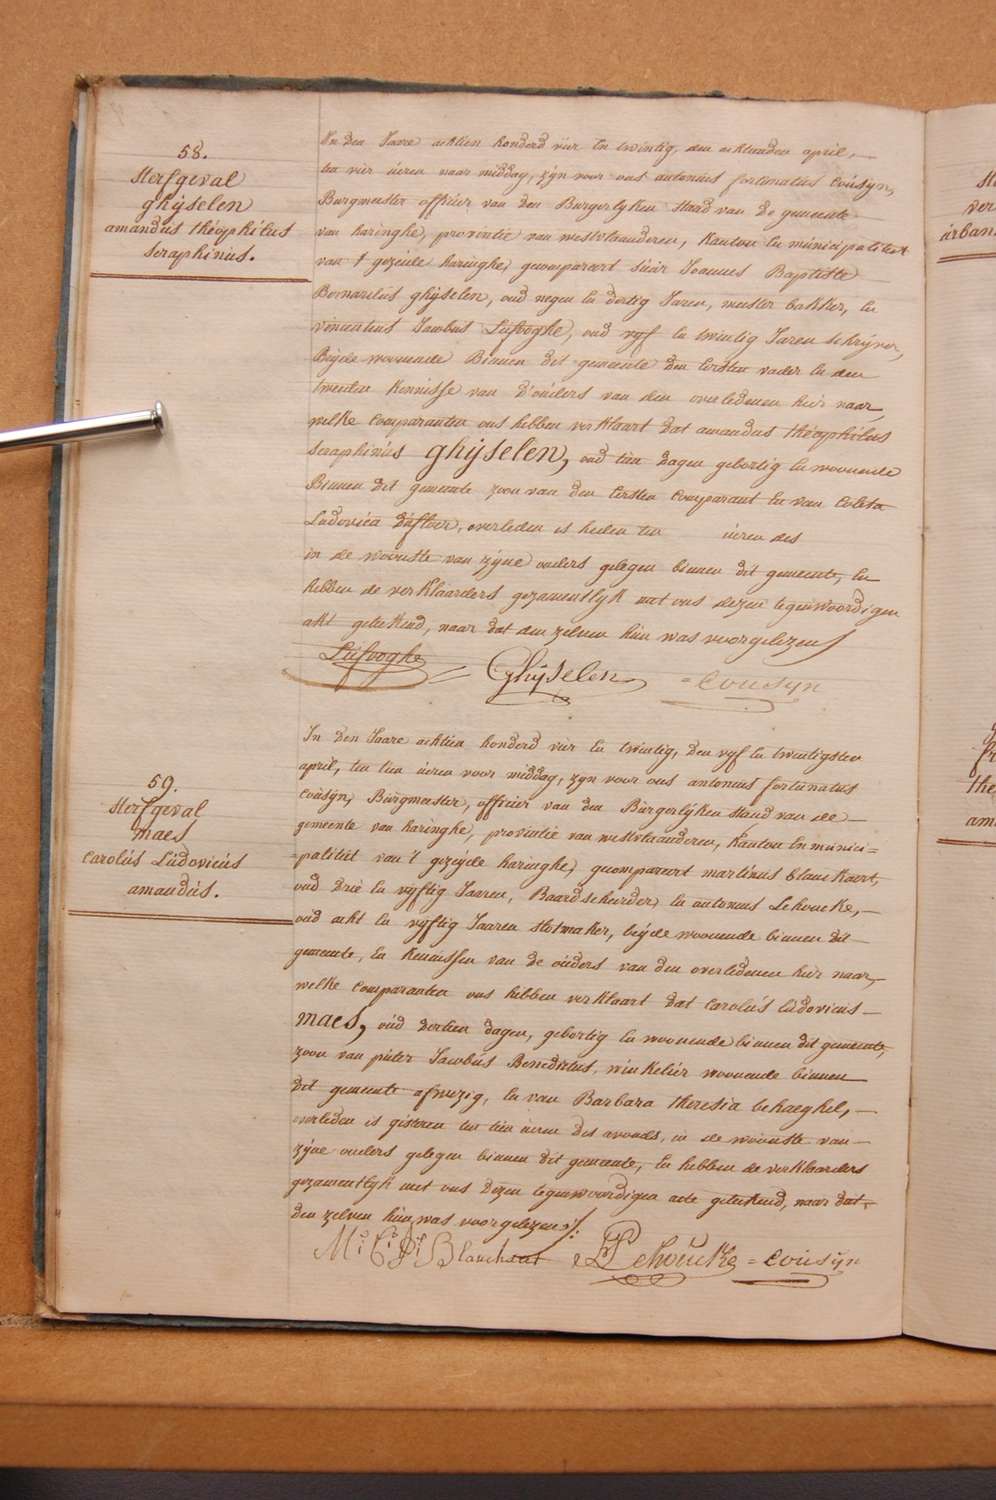 58.
Sterfgeval
ghÿselen
amandus théophilus
seraphinus.
In den Jaare achtien honderd vier en twintig, den achtsten april,
ten vier üren naar middag, zÿn voor ons antonius fortunatus Cousÿn,
Burgmeester officier van den Burgerlÿken staad van de gemeente
van haringhe, provintie van westvlaanderen, Kanton en münicipaliteit
van 't gezeide haringhe, gecompareert sieür Joannes Baptiste
Bernardus ghÿselen, oud negen en dertig Jaren, meester bakker, en
vincentius Jacobus Lüfvoghe, oud vÿf en twintig Jaren schrÿver,
Beÿde woonende Binnen dit gemeente den Eersten vader en den
tweeden Kennisse van d'oüders van den overledenen hier naar,
welke Comparanten ons hebben verklaart dat amandus théophilus
seraphinus ghÿselen, oud tien dagen gebortig en woonende
Binnen dit gemeente zoon van den Eersten Comparant en van Coleta
Ludovica, overleden is heden ten üren des
in de woonste van zÿne ouders gelegen binnen dit gemeente, en
hebben de verklaarders gezamentlÿk met ons dezen tegenwoordigen
akt geteekend, naar dat den zelven hün was voorgelezen
Lüfvoghe Ghÿselen = Cousÿn
59.
Sterfgeval
maes
Carolüs Lüdovicüs
amandüs.
In den Jaare achtien honderd vier en twintig, den vÿf en twintigsten
april, ten tien üren voor middag, zÿn voor ons antonius fortunatus
Coüsÿn, Bürgmeester, officier van den Bürgerlÿken stand van de
gemeente van haringhe, provintie van westvlaanderen, Kanton en münici=
=paliteit van 't gezeÿde haringhe, gecompareert martinus blanckaert,
oud drie en vÿftig Jaaren, Baardscheerder, en antonius Lehoucke,
oüd acht en vÿftig Jaaren slotmaker, beÿde woonende binnen dit
gemeente, en Kennissen van de oüders van den overledenen hier naar,
welke Comparanten ons hebben verklaart dat Carolüs lüdovicüs
maes, oüd dertien dagen, gebortig en woonende binnen dit gemeente,
zoon van pieter Jacobüs Benedictus, winkelier woonende binnen
dit gemeente afwezig, en van Barbara theresia behaeghel,
overleden is gisteren ten tien üren des avonds, in de wooniste van
zÿne ouders gelegen binnen dit gemeente, en hebben de verklaarders
gezamentlÿk met ons dezen tegenwoordigen acte geteekend, naar dat
den zelven hün was voorgelezen ./.
Blanckaert Lehoucke = Coüsÿn